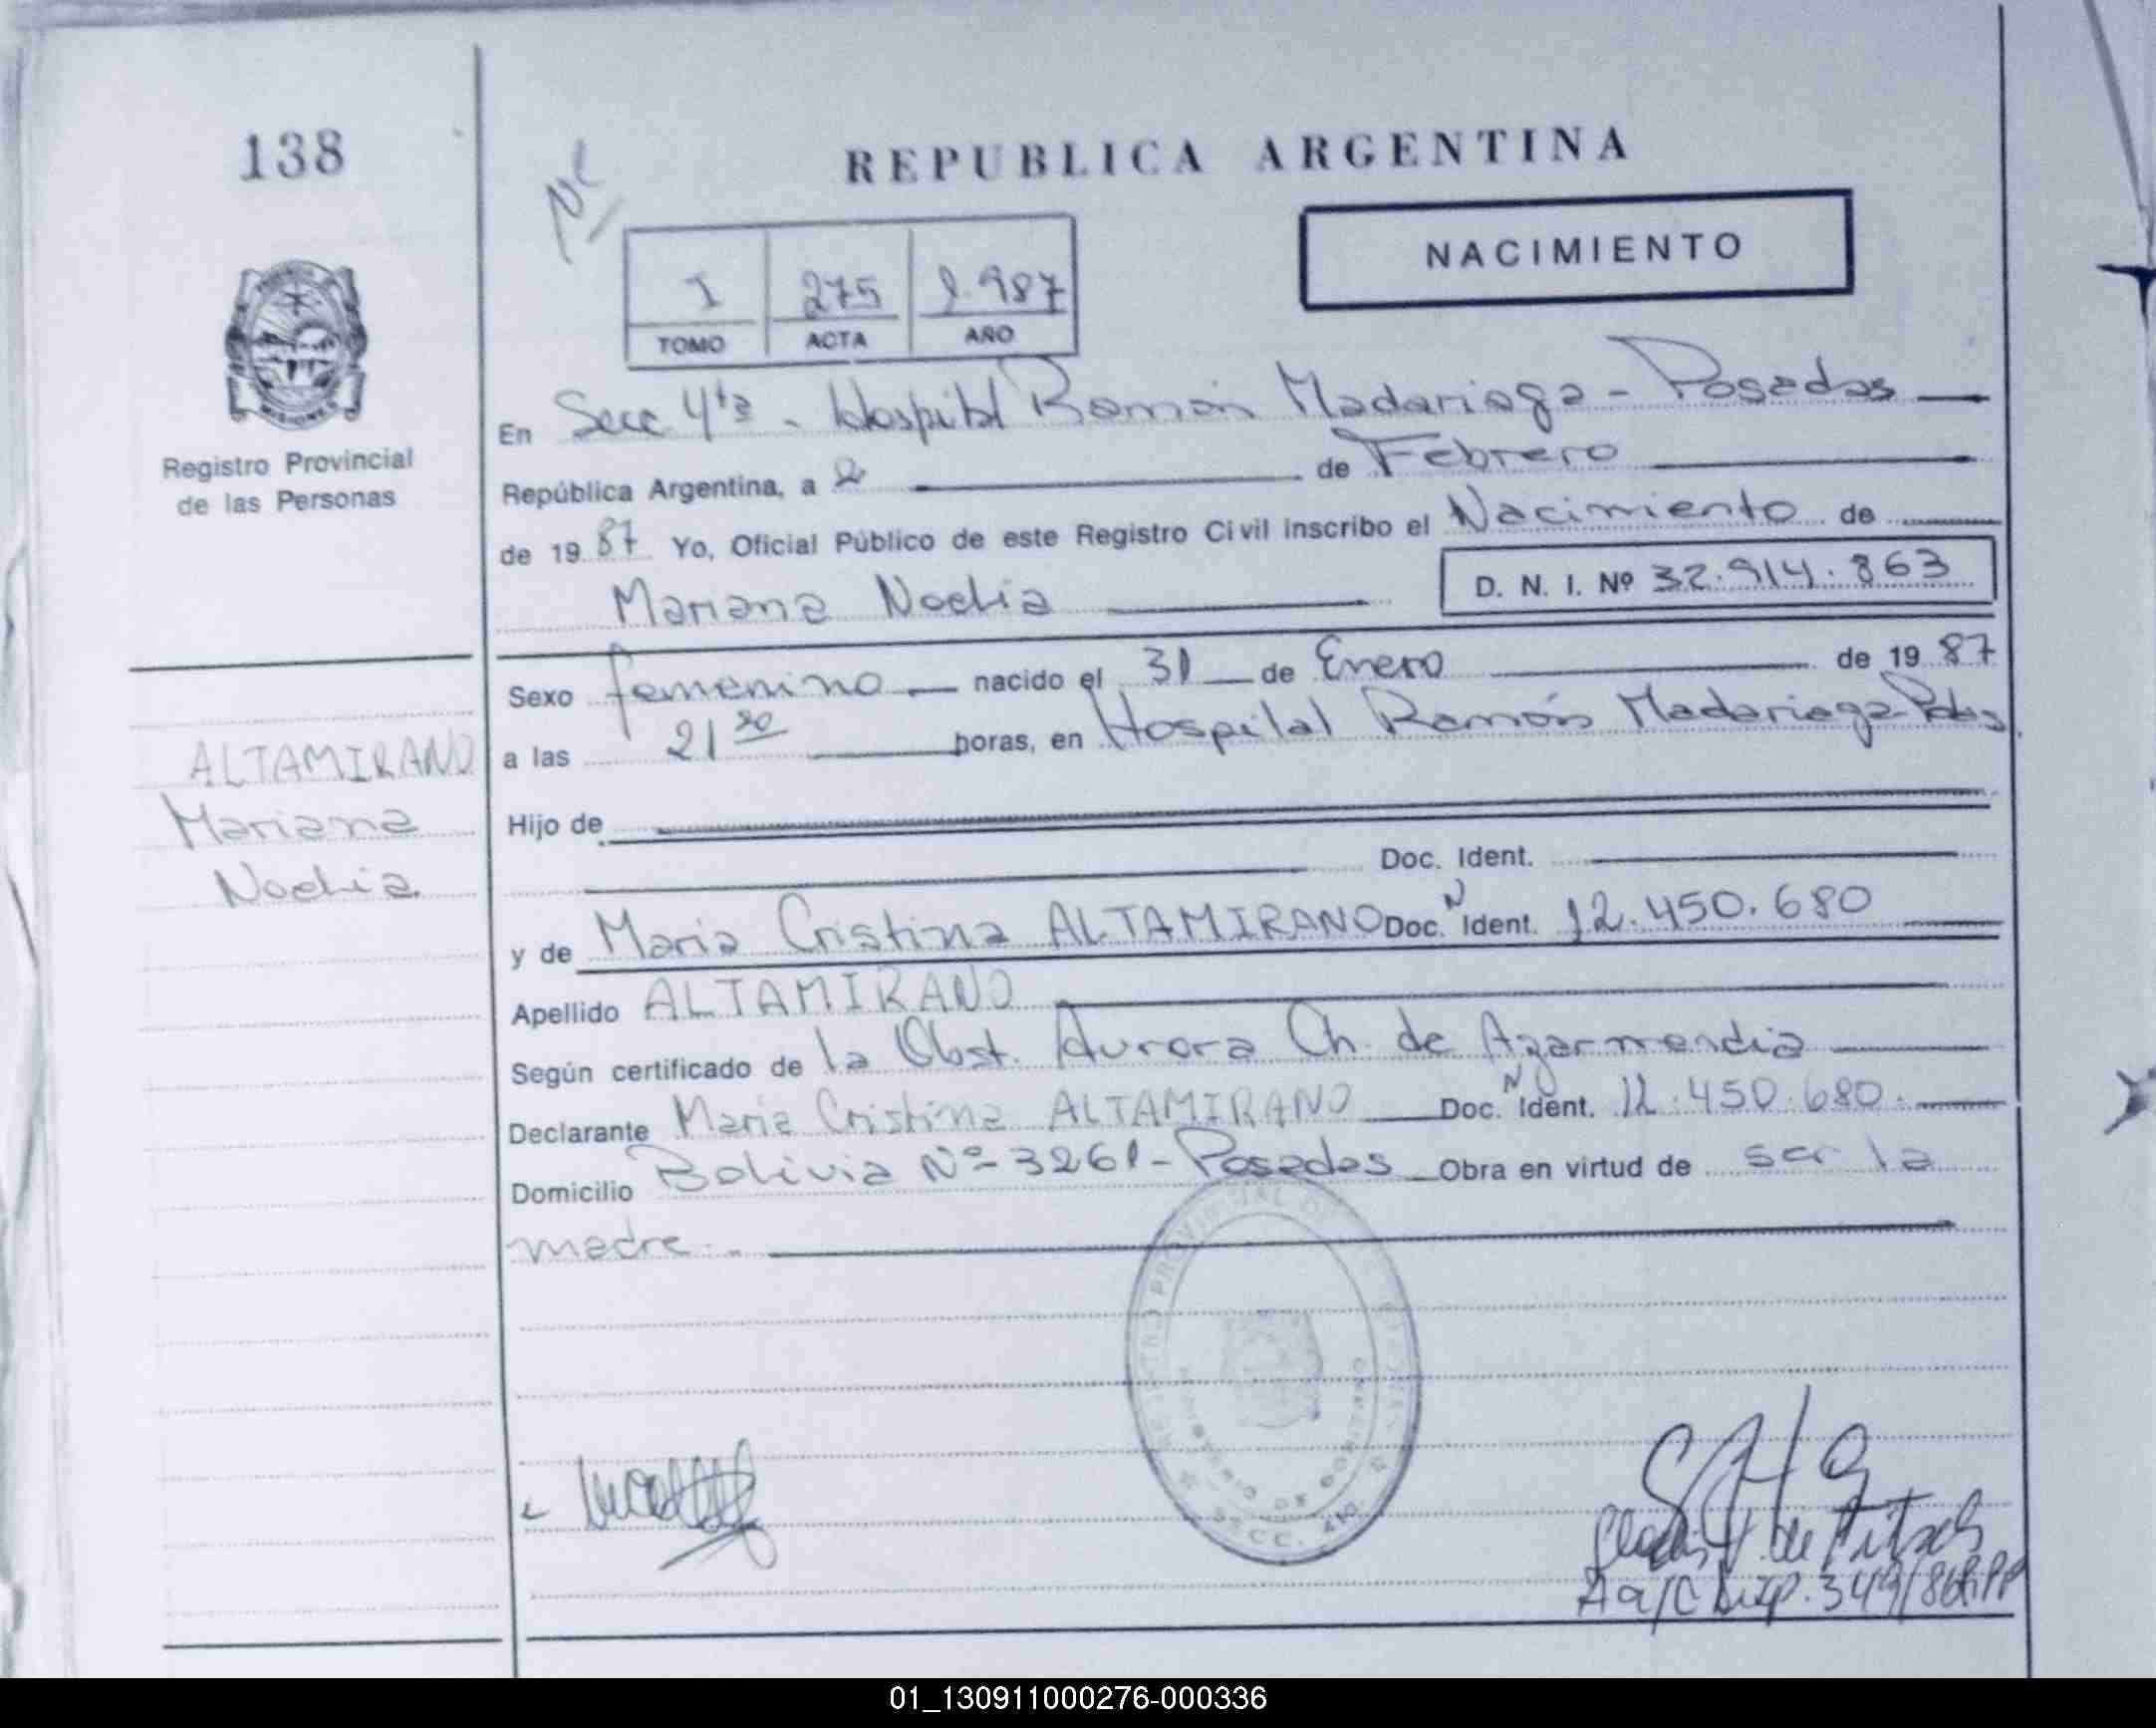 138
REPUBLICA ARGENTINA
NACIMIENTO
I 275 1.987
TOMO ACTA AÑO
Registro Provincial
de las Personas
En Secc 4ta - Hospital Ramón Madariaga - Posadas
República Argentina, a 2 de Febrero
de 19 87 Yo, Oficial Público de este Registro Civil inscribo el Nacimiento de
Mariana Noelia D. N. I. Nº 32.914.863
Sexo femenino nacido el 31 de Enero de 19 87
a las 21 horas, en Hospital Ramón Madariaga Pdas
ALTAMIRANO
Mariana
Noelia
Hijo de
Doc. Ident.
y de Maria Cristina ALTAMIRANO Doc. N Ident. 12.450.680
Apellido ALTAMIRANO
Según certificado de la Obst. Aurora Ch. de Azarmendia
Declarante Maria Cristina ALTAMIRANO Doc. N Ident. 12.450.680.
Domicilio Bolivia Nº 3261 - Posadas Obra en virtud de ser la
madre.
REGISTRO PROVINCIAL DE
MINISTERIO DE GOBIERNO
SECC. 4ta
A a/c Disp. 349/86
01_130911000276-000336